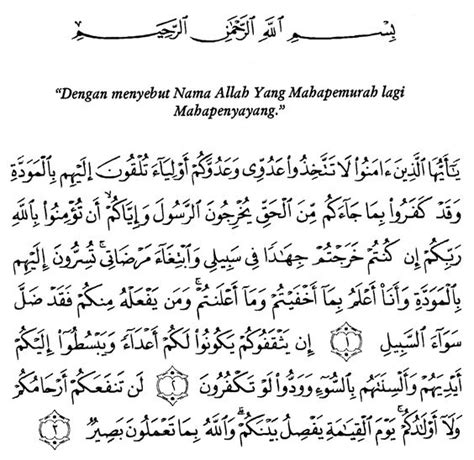 بِسْمِ اللَّهِ الرَّحْمَٰنِ الرَّحِيمِ
“Dengan menyebut Nama Allah Yang Mahapemurah lagi
Mahapenyayang.”
يَـٰٓأَيُّهَا ٱلَّذِينَ ءَامَنُوا۟ لَا تَتَّخِذُوا۟ عَدُوِّى وَعَدُوَّكُمْ أَوْلِيَآءَ تُلْقُونَ إِلَيْهِم بِٱلْمَوَدَّةِ
وَقَدْ كَفَرُوا۟ بِمَا جَآءَكُم مِّنَ ٱلْحَقِّ يُخْرِجُونَ ٱلرَّسُولَ وَإِيَّاكُمْ ۙ أَن تُؤْمِنُوا۟ بِٱللَّهِ
رَبِّكُمْ إِن كُنتُمْ خَرَجْتُمْ جِهَـٰدًا فِى سَبِيلِى وَٱبْتِغَآءَ مَرْضَاتِى ۚ تُسِرُّونَ إِلَيْهِم
بِٱلْمَوَدَّةِ وَأَنَا۠ أَعْلَمُ بِمَآ أَخْفَيْتُمْ وَمَآ أَعْلَنتُمْ ۚ وَمَن يَفْعَلْهُ مِنكُمْ فَقَدْ ضَلَّ
سَوَآءَ ٱلسَّبِيلِ ﴿١﴾ إِن يَثْقَفُوكُمْ يَكُونُوا۟ لَكُمْ أَعْدَآءً وَيَبْسُطُوٓا۟ إِلَيْكُمْ
أَيْدِيَهُمْ وَأَلْسِنَتَهُم بِٱلسُّوٓءِ وَوَدُّوا۟ لَوْ تَكْفُرُونَ ﴿٢﴾ لَن تَنفَعَكُمْ أَرْحَامُكُمْ
وَلَآ أَوْلَـٰدُكُمْ ۚ يَوْمَ ٱلْقِيَـٰمَةِ يَفْصِلُ بَيْنَكُمْ ۚ وَٱللَّهُ بِمَا تَعْمَلُونَ بَصِيرٌ ﴿٣﴾